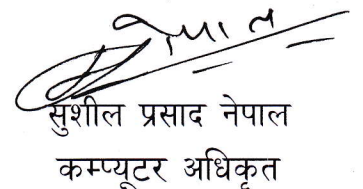 नेपाल
सुशील प्रसाद नेपाल
कम्प्युटर अधिकृत